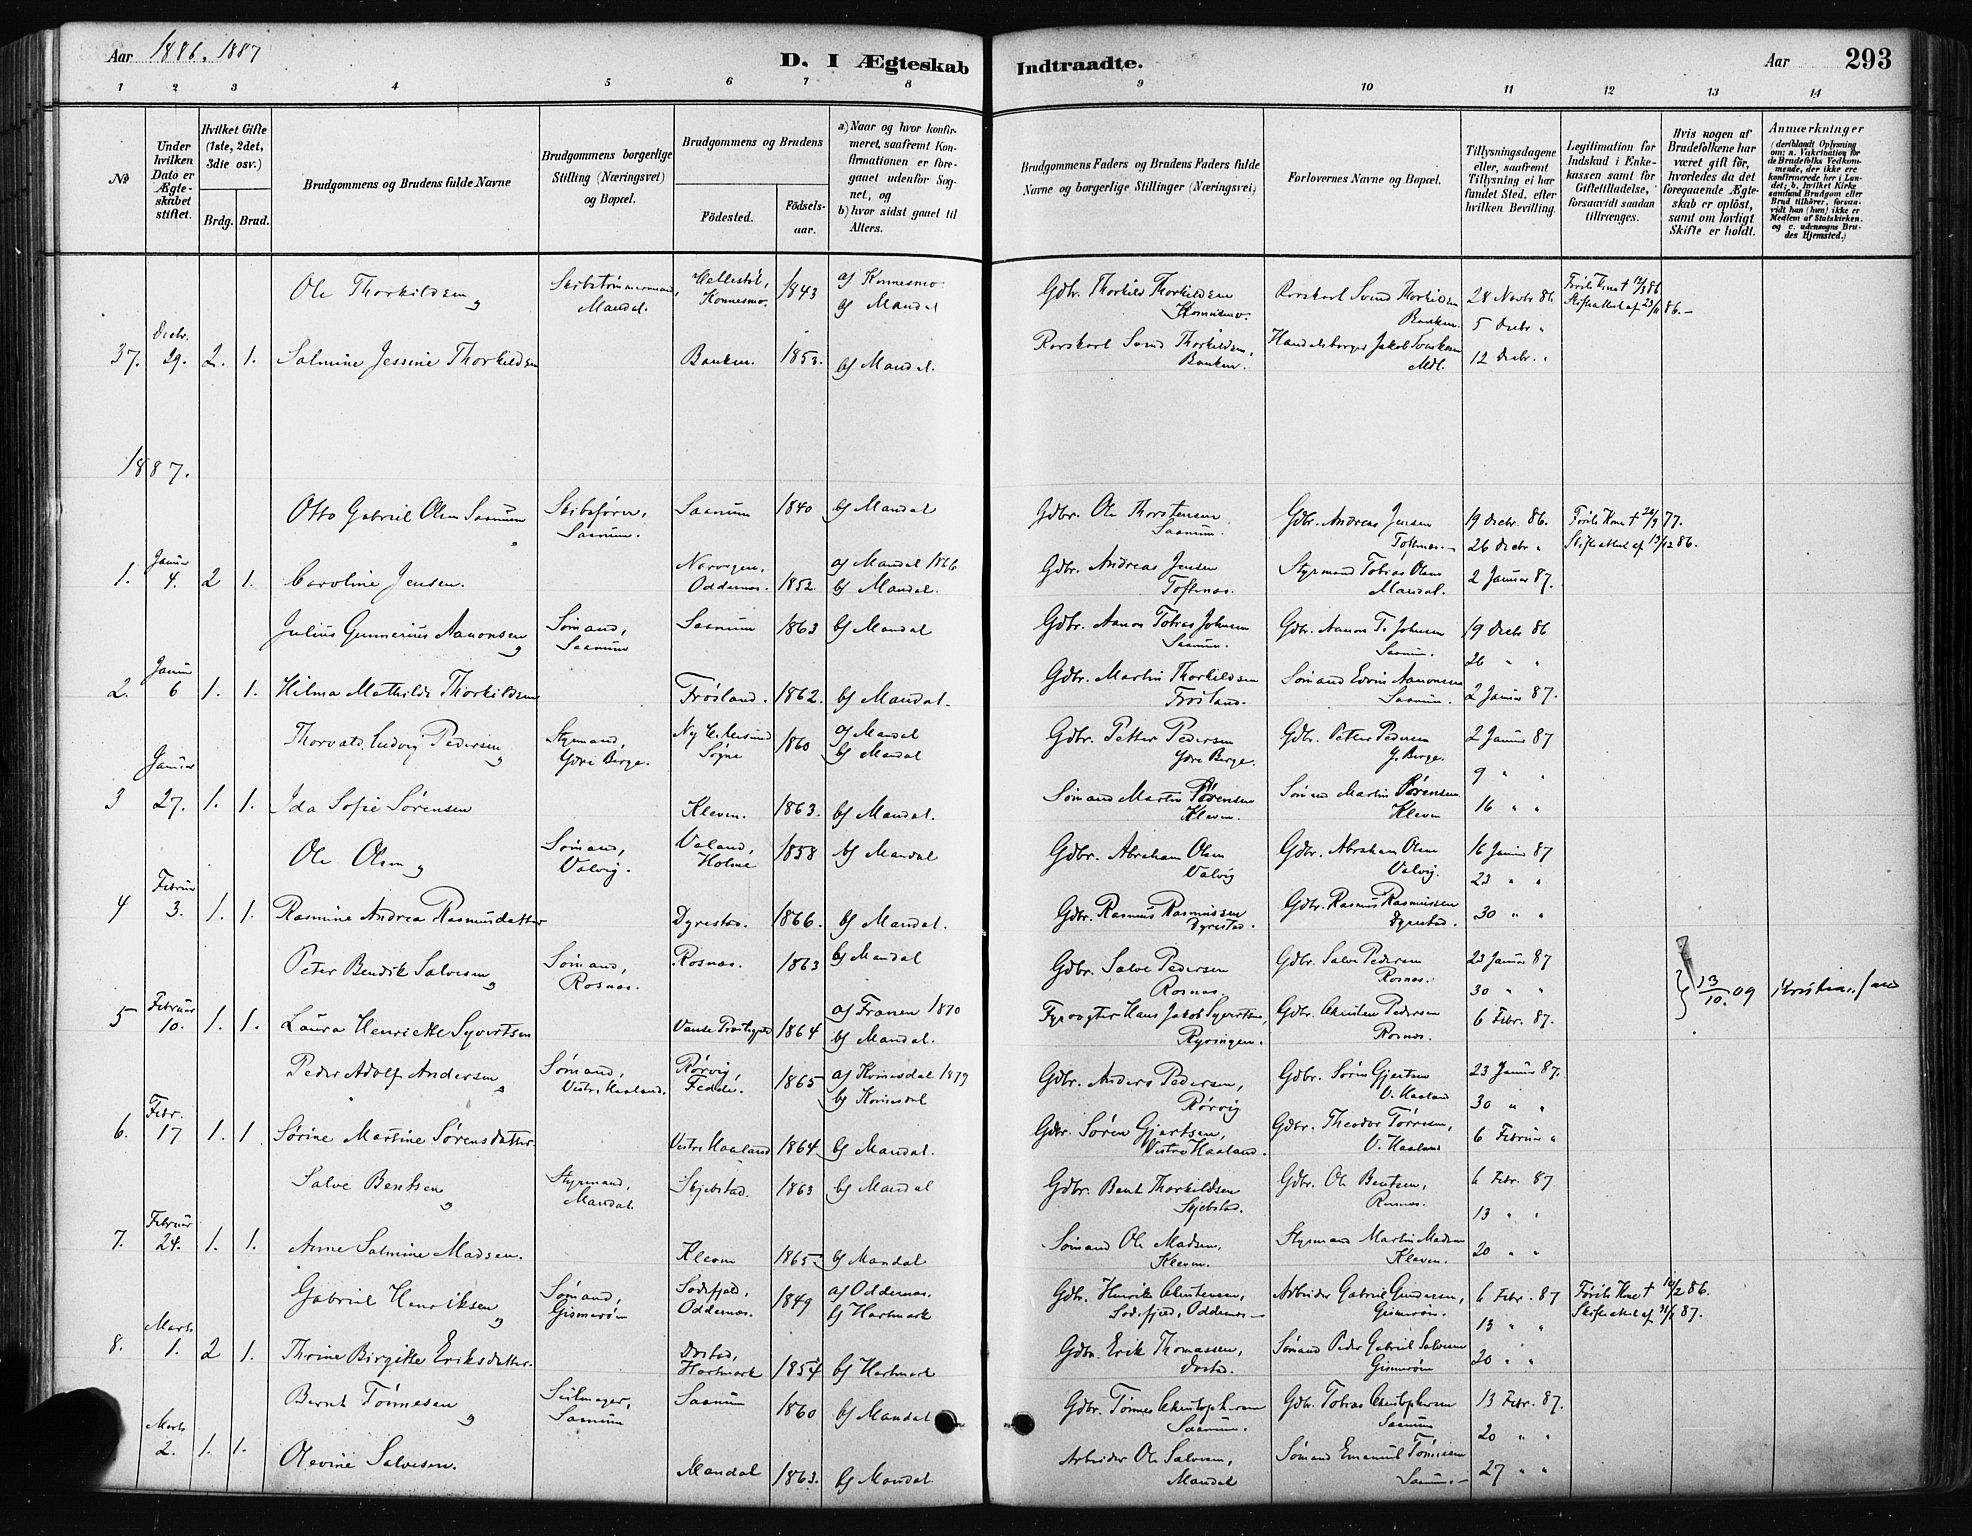 Aar 1886. 1887
D. I Ægteskab
Indtraadte.
Aar
293
1 2 3 4 5 6 7 8 9 10 11 12 13 14
No
Under hvilken Dato er Ægteskabet stiftet.
Hvilket Gifte (1ste, 2det, 3die osv.)
Brdg. Brud.
Brudgommens og Brudens fulde Navne
Brudgommens borgerlige Stilling (Næringsvei) og Bopæl.
Brudgommens og Brudens
Födested.
Födselsaar.
a) Naar og hvor konfirmeret, saafremt Konfirmationen er foregaaet udenfor Sognet, og
b) hvor sidst gaaet til Alters.
Brudgommens Faders og Brudens Faders fulde Navne og borgerlige Stillinger (Næringsvei)
Forlovernes Navne og Bopæl.
Tillysningsdagene eller, saafremt Tillysning ei har fundet Sted, efter hvilken Bevilling.
Legitimation for Indskud i Enkekassen samt for Giftetilladelse, forsaavidt saadan tiltrænges.
Hvis nogen af Brudefolkene har været gift för, hvorledes da det foregaaende Ægteskab er oplöst, samt om lovligt Skifte er holdt.
Anmærkninger (deriblandt Oplysning om: a. Vakcination for de Brudefolks Vedkommende, der ikke ere konfirmerede her i Landet; b. hvilket Kirkesamfund Brudgom eller Brud tilhörer, forsaavidt han (hun) ikke er Medlem af Statskirken. og c. udensogns Brudes Hjemsted.)
Ole Thorkildsen, Skibstømmermand, Mandal. Konnesmo. 1843 a) Konnesmo b) Mandal
Gdbr. Thorkild Thorkildsen Konnesmo. Svend Thorkildsen Banken. 28 Novbr 86. 5 Decbr "
37. Decbr. 29. 2. 1. Salmine Jessine Thorkildsen Banken. 1853. b) Mandal.
Svend Thorkildsen, Banken. Mdl. 12 Decbr. "
1887.
Otto Gabriel Olsen Saanum Skibsfører, Saanum. Saanum 1840 b) Mandal
Gdbr. Ole Thorstensen Saanum. Gdbr. Andreas Jensen Toftenæs. 19 Decbr. 86. 26 Decbr "
1. Januar 4. 2 1. Caroline Jensen. Oddernes. 1852. a) Mandal 1866 b) Mandal.
Gdbr. Andreas Jensen Toftenæs. Styrmand Tobias Olsen Mandal. 2 Januar 87.
Julius Gunnerius Aanonsen Sømand, Saanum Saanum 1863 b) Mandal
Gdbr. Aanon Tobias Johnsen Saanum. Gdbr. Aanon T. Johnsen Saanum. 19 Decbr 86 26 " "
2. Januar 6 1. 1. Hilma Mathilde Thorkildsen Frøsland. 1862. b) Mandal.
Gdbr. Martin Thorkildsen Frøsland. Sømand Edvin Aanonsen Saanum. 2 Januar 87.
Thorvald Ludvig Pedersen Styrmand, Ydre Berge. Søgne 1860 a) Mandal b) Mandal
Gdbr. Petter Pedersen Ydre Berge. Gdbr. Petter Pedersen Y. Berge. 2 Januar 87 9 " "
3 Januar 27. 1. 1. Ida Sofie Sørensen Kleven. 1863. b) Mandal.
Sømand Martin Sørensen Kleven. Sømand Martin Sørensen Kleven 16 " "
Ole Olsen Sømand, Valvig. Valand, Holme 1858 b) Mandal
Gdbr. Abraham Olsen Valvig Gdbr. Abraham Olsen Valvig. 16 Januar 87 23 " "
4 Februar 3. 1. 1. Rasmine Andrea Rasmusdatter Dyrestad. 1866. b) Mandal.
Gdbr. Rasmus Rasmussen Dyrestad. Gdbr. Rasmus Rasmussen Dyrestad. 30 " "
Peter Bendik Salvesen Sømand, Rosnæs. Rosnæs. 1863 b) Mandal
Gdbr. Salve Pedersen Rosnæs. Gdbr. Salve Pedersen Rosnæs. 23 Januar 87 30 " "
13/10. 09 Kristiansand
5 Februar 10. 1. 1. Laura Henriette Syvertsen 1864 1870 b) Mandal.
Fyrvogter Hans Jakob Syvertsen, Ryvingen. Gdbr. Christen Pedersen Rosnæs. 6 Febr. 87.
Peder Adolf Andersen Sømand, Vestre Haaland. Rørvig, Fedde. 1865 1879
Gdbr. Anders Pedersen, Rørvig Gdbr. Søren Gjertsen V. Haaland 23 Januar 87. 30 " "
6. Febr. 17 1. 1. Sørine Martine Sørensdatter. Vestre Haaland 1864. b) Mandal.
Gdbr. Søren Gjertsen, Vestre Haaland. Gdbr. Theodor Tørresen, V. Haaland 6 Februar "
Salve Bentsen Styrmand, Mandal. Skjebstad. 1863 b) Mandal
Gdbr. Bent Thorkildsen Skjebstad. Gdbr. Ole Bentsen, 6 Febr. 87 13 " "
7. Februar 24. 1. 1. Anne Salmine Madsen. Kleven 1865. b) Mandal
Sømand Ole Madsen, Kleven. Styrmand Martin Madsen Kleven. 20 " "
Gabriel Henriksen Sømand, Gismerøen Oddernes. 1849 a) Oddernes. b) Hartmark
Gdbr. Henrik Christensen, Oddernes. Arbeider Gabriel Gundersen, Gismerøen. 6 Febr. 87 13 " "
8. Marts 1. 2 1. Thrine Birgitte Eriksdatter. Hartmark 1854 b) Hartmark
Gdbr. Erik Thomassen, Sømand Peder Gabriel Salvesen Gismerøen 20 " "
Bernt Tønnesen Seilmager, Saanum Saanum 1860 b) Mandal
Gdbr. Tønnes Christophersen Saanum. Gdbr. Tobias Christophersen Saanum 13 Febr. 87. 20 " "
Marts 2. 1. 1. Olevine Salvesen. Mandal 1863. b) Mandal
Arbeider Ole Salvesen, Mandal Sømand Emanuel Tønnesen Saanum. 27 " "